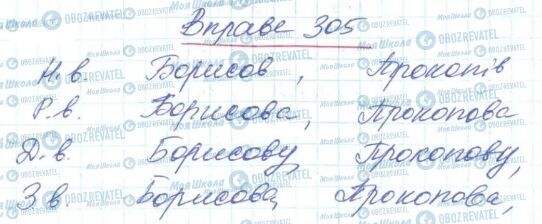 Вправа 305
Н. в. Борисов, Прокопів
Р. в. Борисова, Прокопова
Д. в. Борисову, Прокопову,
З. в. Борисова, Прокопова,